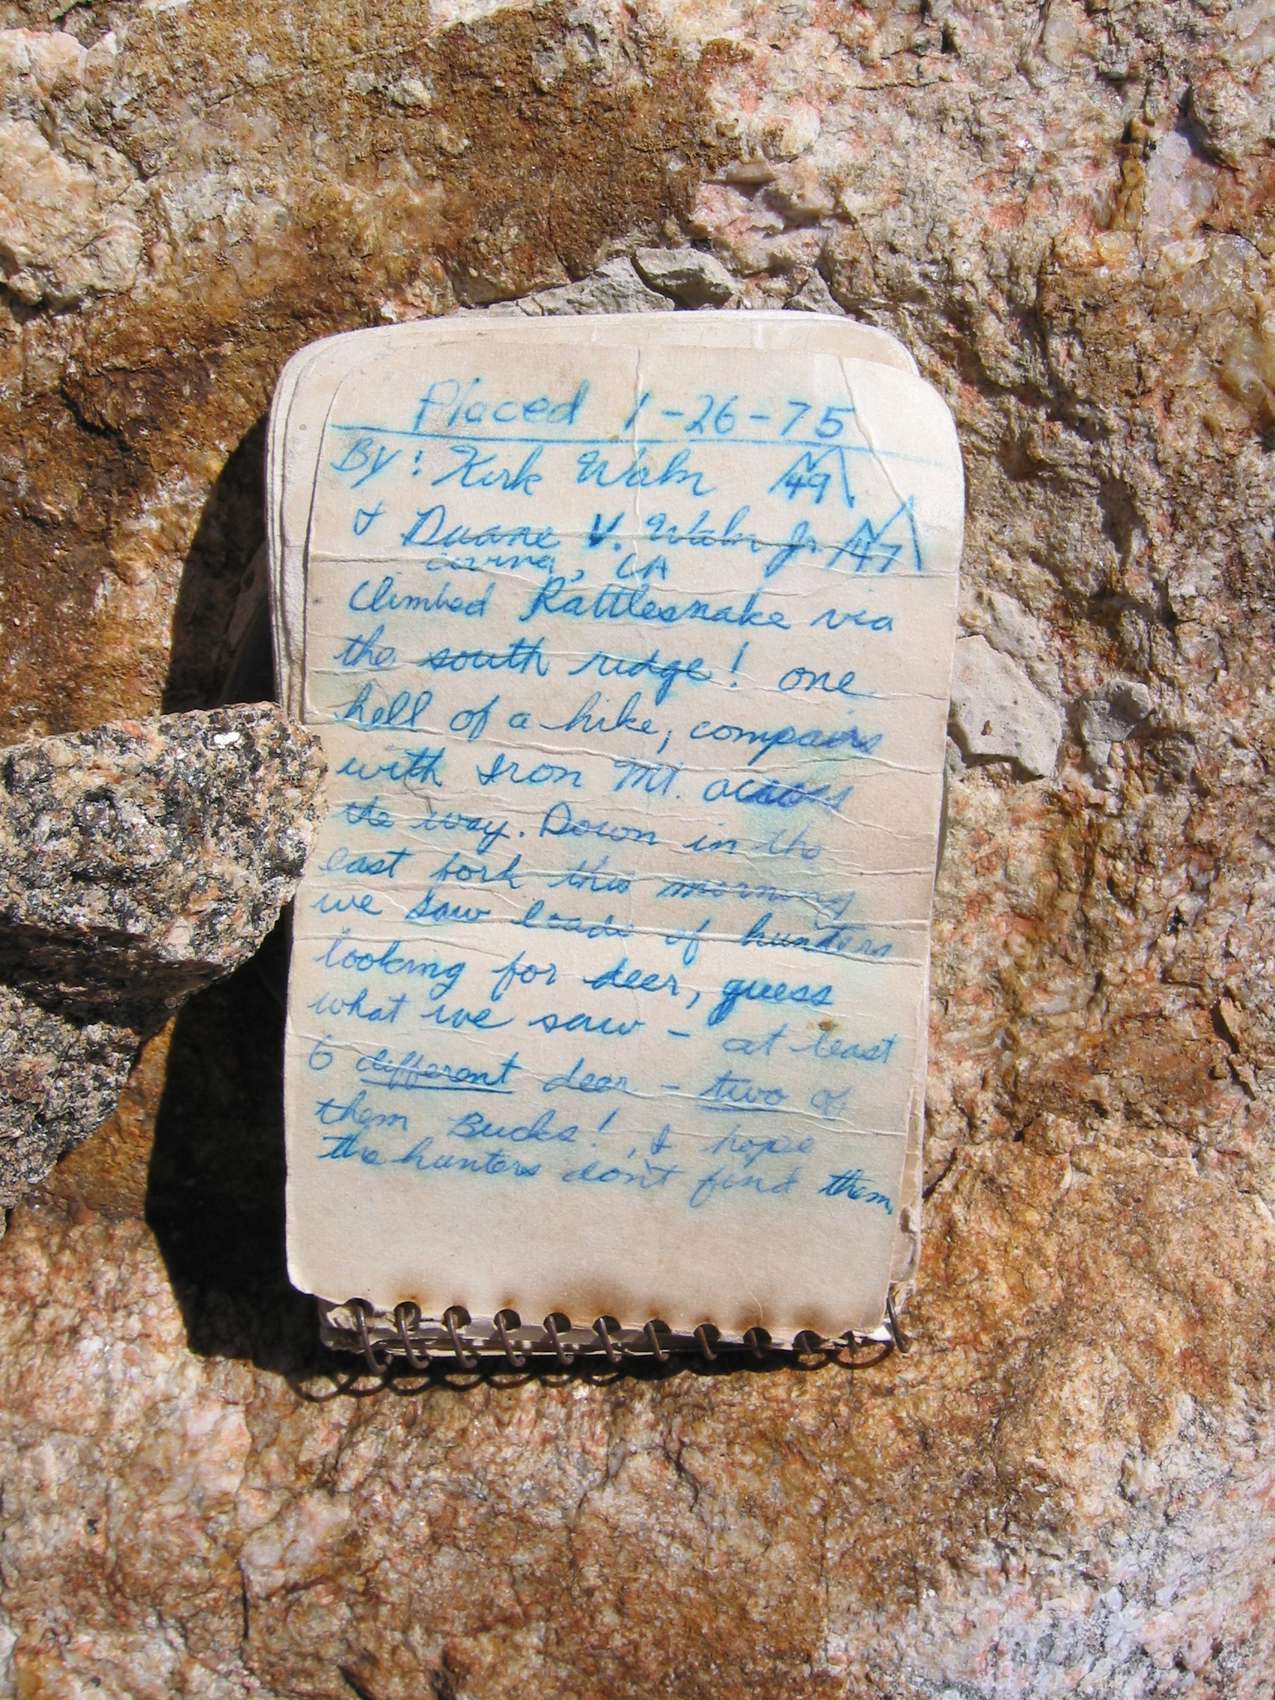 Placed 1-26-75
By: Kirk Wahr 49
& Duane V. Wahr Jr. 47
Covina, CA
Climbed Rattlesnake via
the south ridge! one
hell of a hike, compairs
with Iron Mt. across
the way. Down in the
east fork this morning
we saw loads of hunters
looking for deer, guess
what we saw - at least
6 different deer - two of
them Bucks!, I hope
the hunters don't find them.